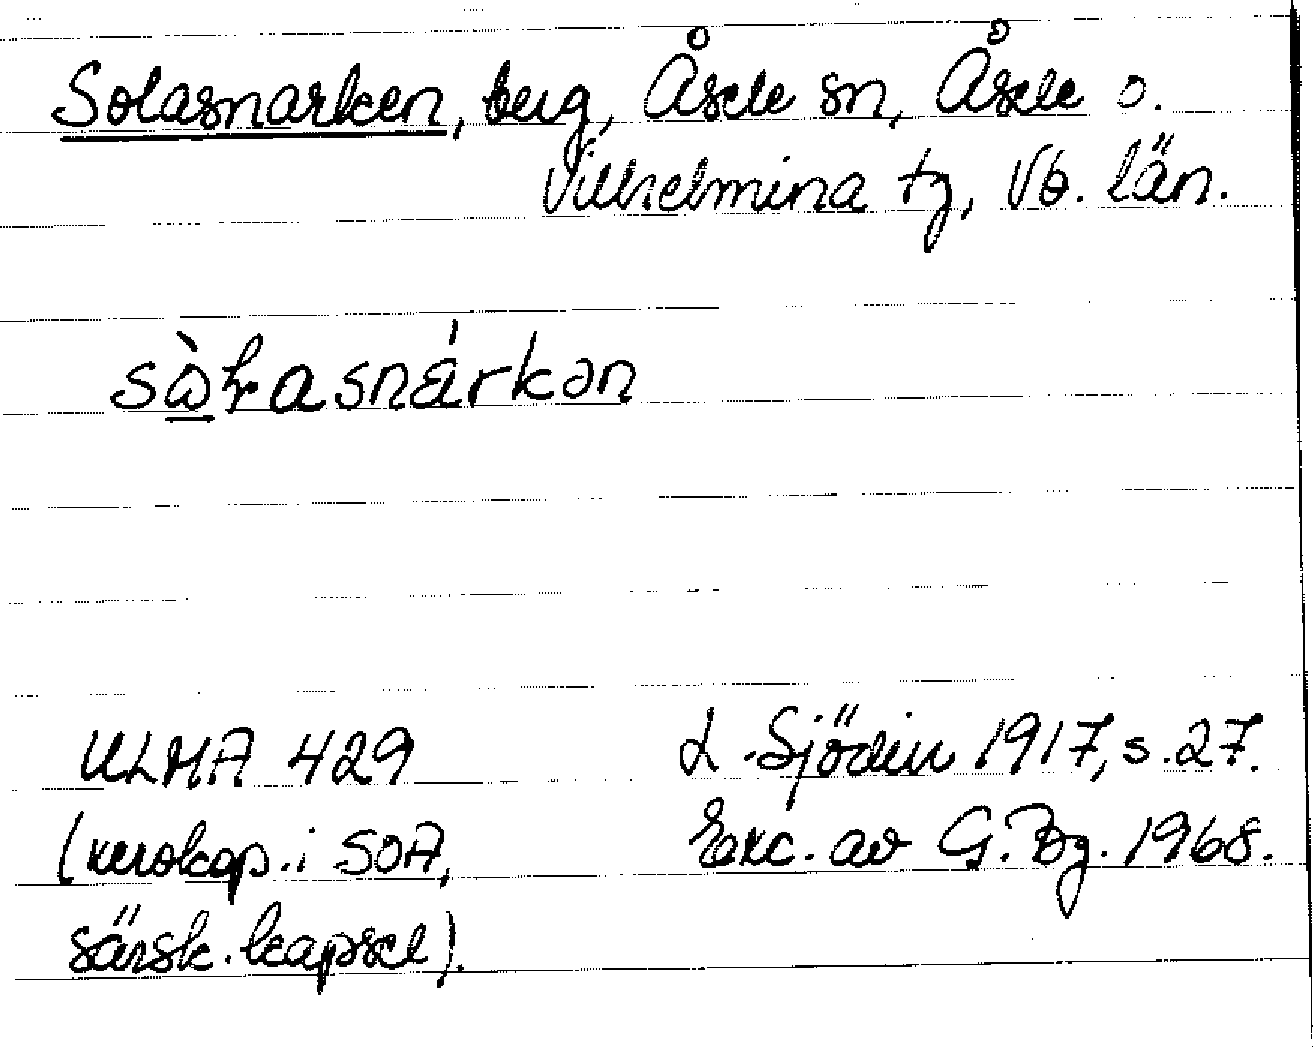 Solasnarken, berg, Åsele sn, Åsele o.
Vilhelmina tg, Vb. län.
sὼⱡasnárkən
ULMA 429
L. Sjödin 1917, s. 27.
(xerokop. i SOA,
Exc. av G. Bg. 1968.
särsk. kapsel).